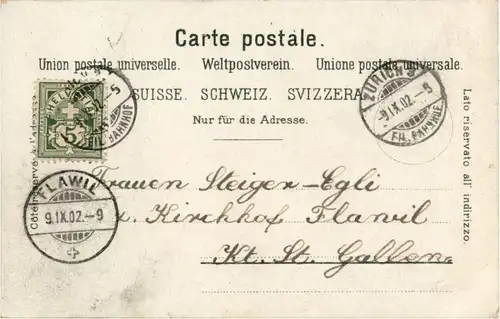 Carte postale.
Union postale universelle. Weltpostverein. Unione postale universale.
SUISSE. SCHWEIZ. SVIZZERA
Nur für die Adresse.
Côté réservé à l'adresse.
Lato riservato all' indirizzo.
HELVETIA
5
BAHNHOF
ZÜRICH
-9.IX.02.-6
FIL. BAHNHOF
FLAWIL
9.IX.02.-9
Frauen Steiger-Egli
z. Kirchhof Flawil
Kt. St. Gallen